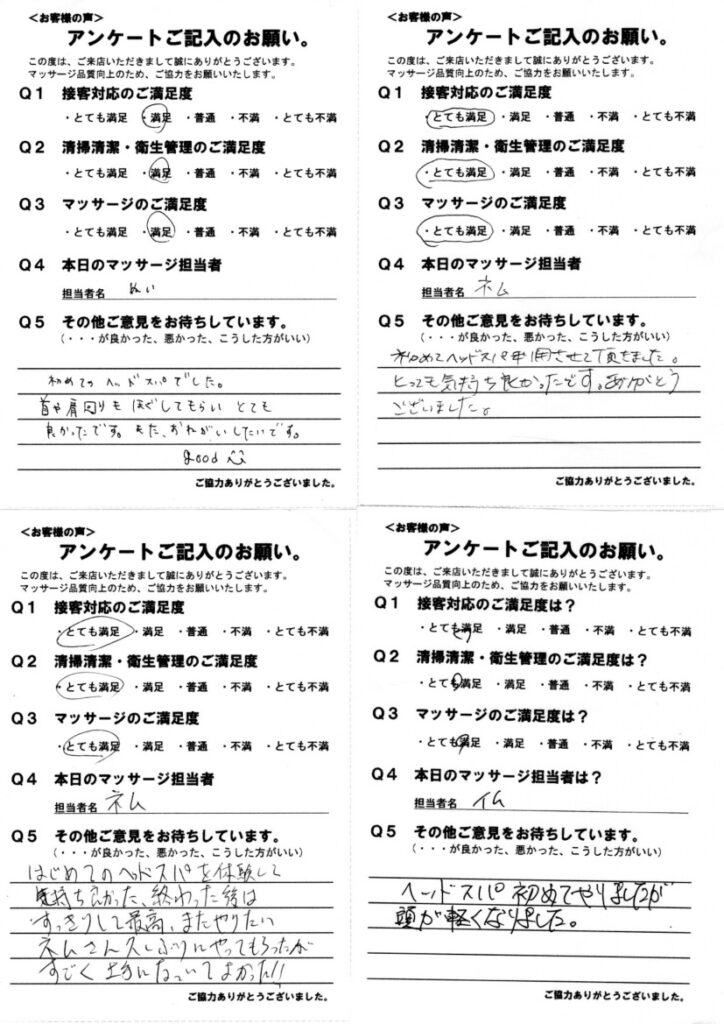 ＜お客様の声＞
アンケートご記入のお願い。
この度は、ご来店いただきまして誠にありがとうございます。
マッサージ品質向上のため、ご協力をお願いいたします。
Q1 接客対応のご満足度
・とても満足 ・満足 ・普通 ・不満 ・とても不満
Q2 清掃清潔・衛生管理のご満足度
・とても満足 ・満足 ・普通 ・不満 ・とても不満
Q3 マッサージのご満足度
・とても満足 ・満足 ・普通 ・不満 ・とても不満
Q4 本日のマッサージ担当者
担当者名 めい
Q5 その他ご意見をお待ちしています。
（・・・が良かった、悪かった、こうした方がいい）
初めての ヘッドスパでした。
首や肩回りも ほぐしてもらい とても
良かったです。また、おねがいしたいです。
good
ご協力ありがとうございました。
＜お客様の声＞
アンケートご記入のお願い。
この度は、ご来店いただきまして誠にありがとうございます。
マッサージ品質向上のため、ご協力をお願いいたします。
Q1 接客対応のご満足度
・とても満足 ・満足 ・普通 ・不満 ・とても不満
Q2 清掃清潔・衛生管理のご満足度
・とても満足 ・満足 ・普通 ・不満 ・とても不満
Q3 マッサージのご満足度
・とても満足 ・満足 ・普通 ・不満 ・とても不満
Q4 本日のマッサージ担当者
担当者名 ネム
Q5 その他ご意見をお待ちしています。
（・・・が良かった、悪かった、こうした方がいい）
初めてヘッドスパ利用させて頂きました。
とっても気持ち良かったです。ありがとう
ございました。
ご協力ありがとうございました。
＜お客様の声＞
アンケートご記入のお願い。
この度は、ご来店いただきまして誠にありがとうございます。
マッサージ品質向上のため、ご協力をお願いいたします。
Q1 接客対応のご満足度
・とても満足 ・満足 ・普通 ・不満 ・とても不満
Q2 清掃清潔・衛生管理のご満足度
・とても満足 ・満足 ・普通 ・不満 ・とても不満
Q3 マッサージのご満足度
・とても満足 ・満足 ・普通 ・不満 ・とても不満
Q4 本日のマッサージ担当者
担当者名 ネム
Q5 その他ご意見をお待ちしています。
（・・・が良かった、悪かった、こうした方がいい）
はじめてのヘッドスパを体験して
気持ち良かった、終わった後は
すっきりして最高、またやりたい
ネムさん久しぶりにやってもらったが
すごく上手になっていてよかった!!
ご協力ありがとうございました。
＜お客様の声＞
アンケートご記入のお願い。
この度は、ご来店いただきまして誠にありがとうございます。
マッサージ品質向上のため、ご協力をお願いいたします。
Q1 接客対応のご満足度は？
・とても満足 ・満足 ・普通 ・不満 ・とても不満
Q2 清掃清潔・衛生管理のご満足度は？
・とても満足 ・満足 ・普通 ・不満 ・とても不満
Q3 マッサージのご満足度は？
・とても満足 ・満足 ・普通 ・不満 ・とても不満
Q4 本日のマッサージ担当者は？
担当者名
Q5 その他ご意見をお待ちしています。
（・・・が良かった、悪かった、こうした方がいい）
ヘッドスパ初めてやりましたが
頭が軽くなりました。
ご協力ありがとうございました。